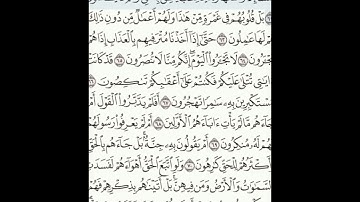 بَلْ قُلُوبُهُمْ فِى غَمْرَةٍ مِّنْ هَٰذَا وَلَهُمْ أَعْمَٰلٌ مِّن دُونِ ذَٰلِكَ
هُمْ لَهَا عَٰمِلُونَ ٦٣ حَتَّىٰٓ إِذَآ أَخَذْنَا مُتْرَفِيهِم بِٱلْعَذَابِ إِذَا هُمْ
يَجْـَٔرُونَ ٦٤ لَا تَجْـَٔرُوا۟ ٱلْيَوْمَ إِنَّكُم مِّنَّا لَا تُنصَرُونَ ٦٥ قَدْ كَانَتْ
ءَايَٰتِى تُتْلَىٰ عَلَيْكُمْ فَكُنتُمْ عَلَىٰٓ أَعْقَٰبِكُمْ تَنكِصُونَ
مُسْتَكْبِرِينَ بِهِۦ سَٰمِرًا تَهْجُرُونَ ٦٧ أَفَلَمْ يَدَّبَّرُوا۟ ٱلْقَوْلَ أَمْ
جَآءَهُم مَّا لَمْ يَأْتِ ءَابَآءَهُمُ ٱلْأَوَّلِينَ ٦٨ أَمْ لَمْ يَعْرِفُوا۟ رَسُولَهُمْ
فَهُمْ لَهُۥ مُنكِرُونَ ٦٩ أَمْ يَقُولُونَ بِهِۦ جِنَّةٌۢ بَلْ جَآءَهُم بِٱلْحَقِّ
وَأَكْثَرُهُمْ لِلْحَقِّ كَٰرِهُونَ ٧٠ وَلَوِ ٱتَّبَعَ ٱلْحَقُّ أَهْوَآءَهُمْ لَفَسَدَتِ
ٱلسَّمَٰوَٰتُ وَٱلْأَرْضُ وَمَن فِيهِنَّ بَلْ أَتَيْنَٰهُم بِذِكْرِهِمْ فَهُمْ